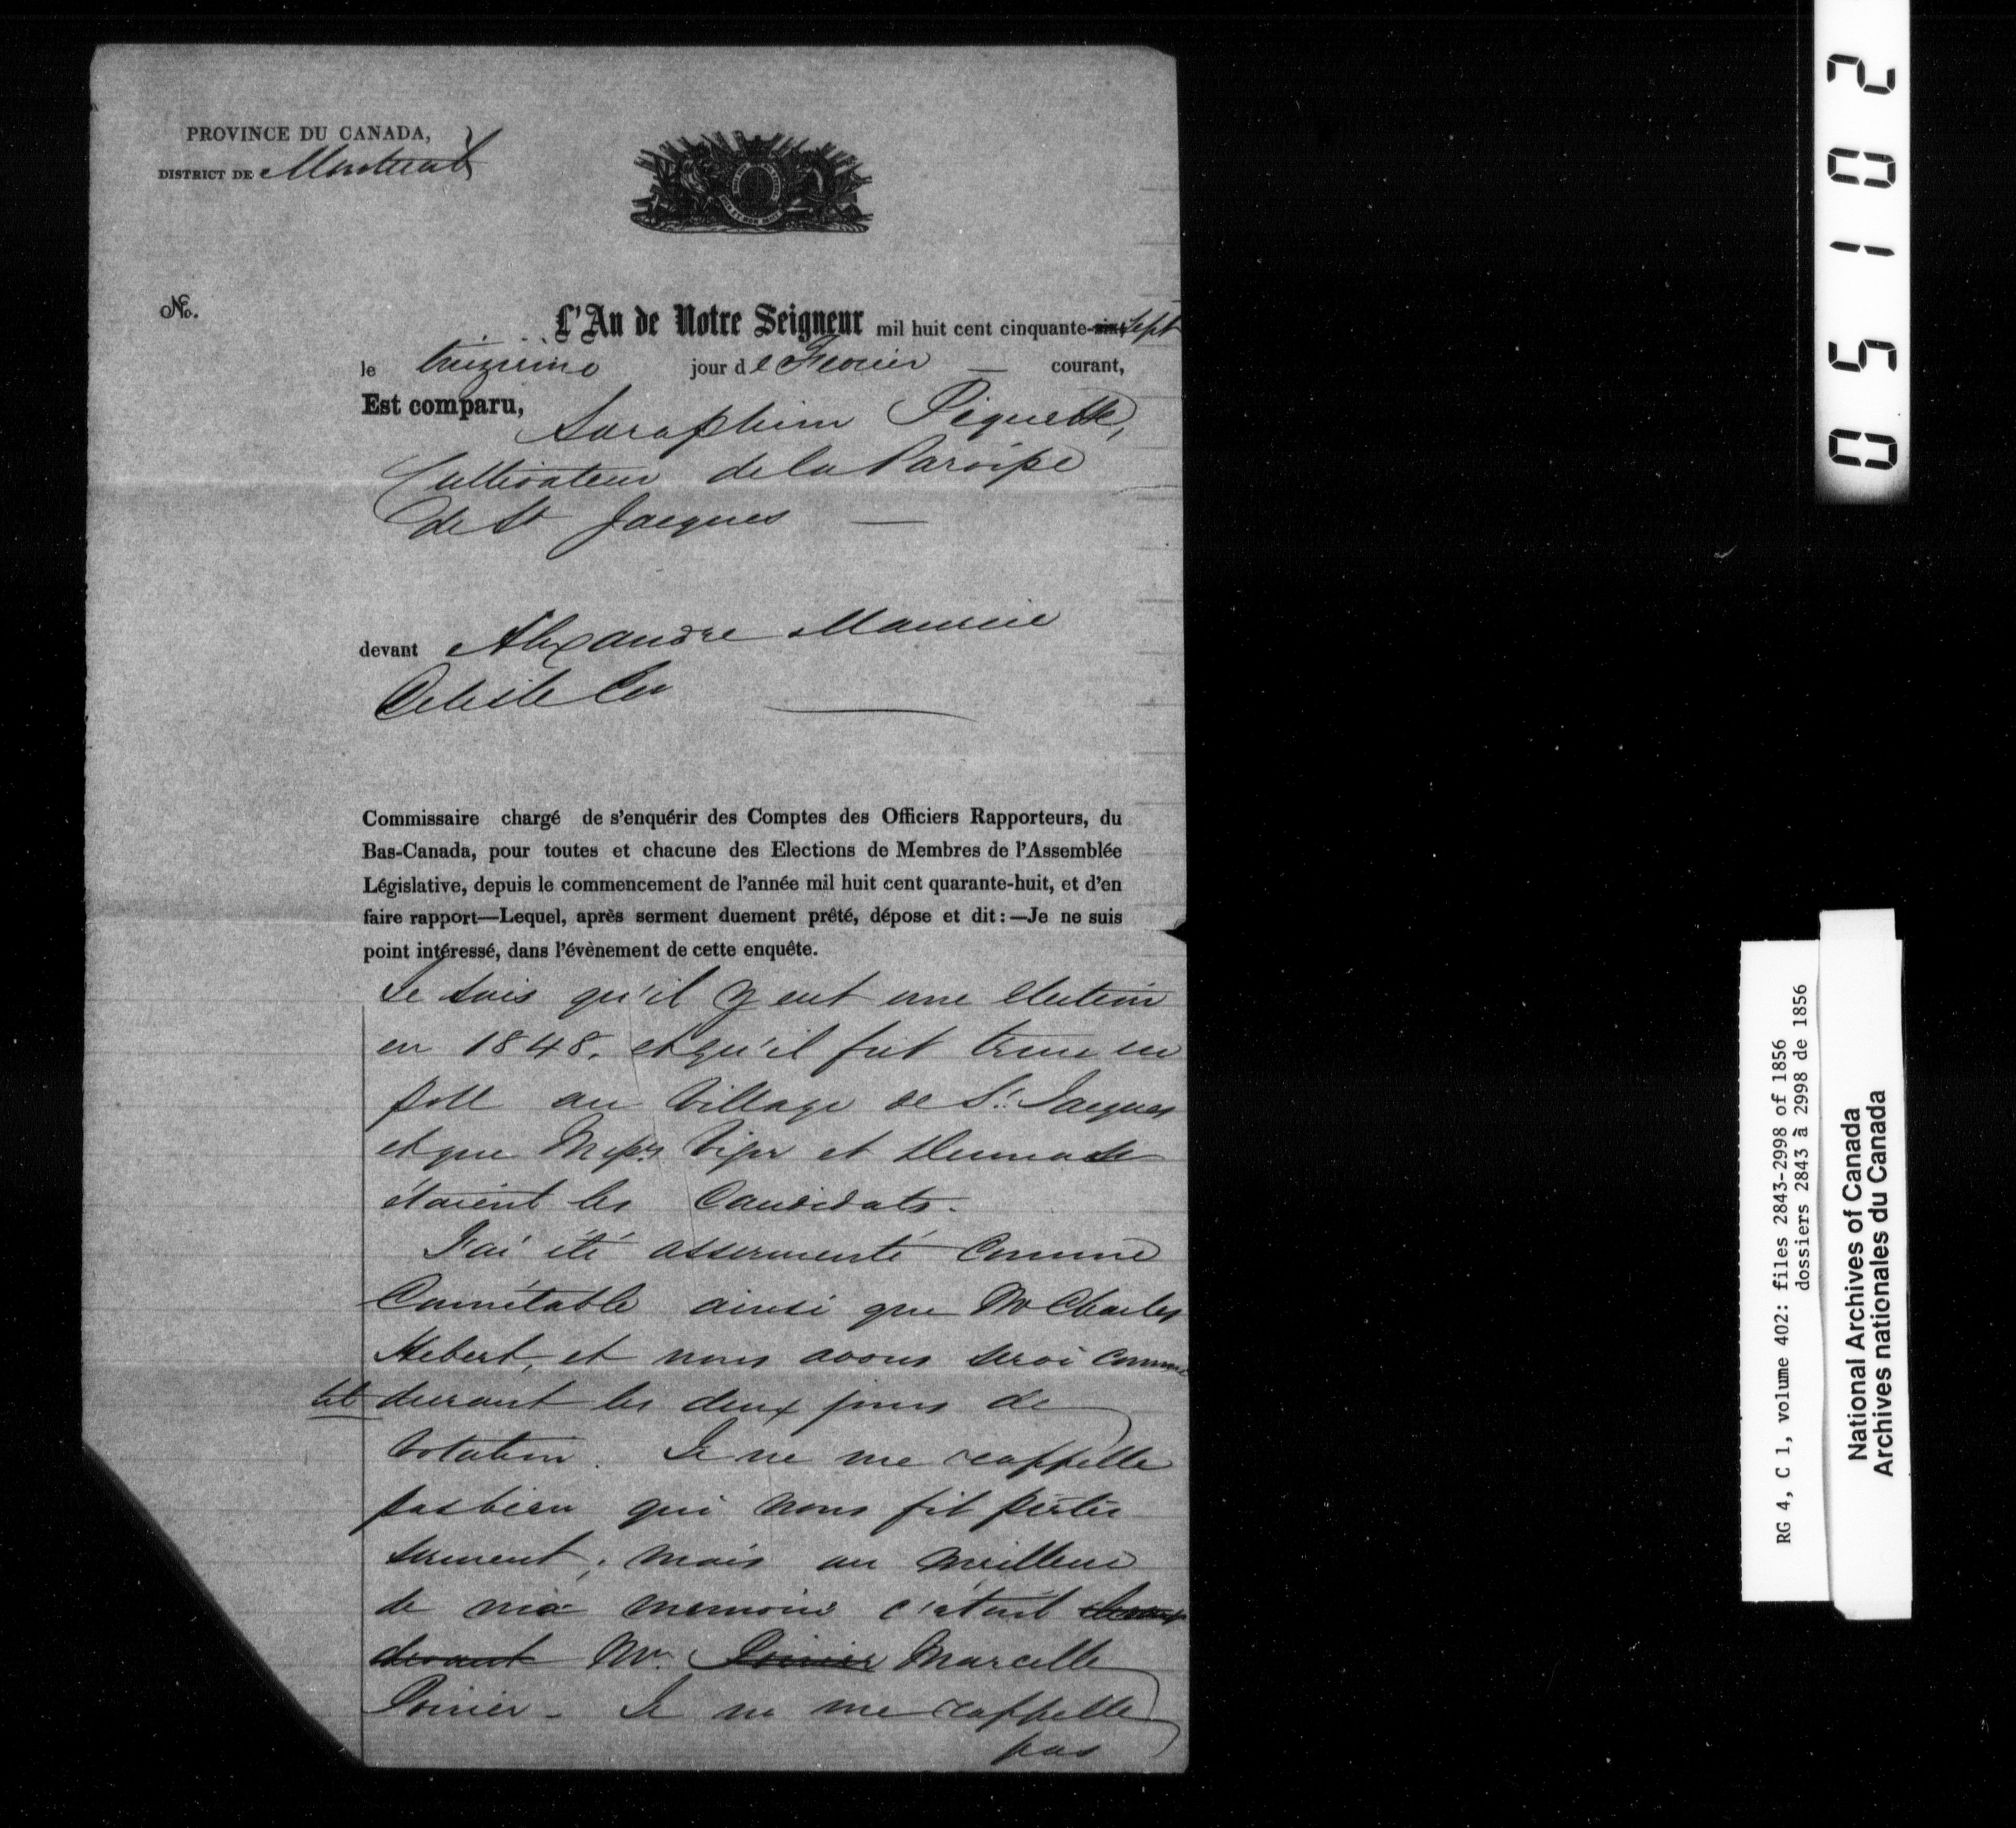 PROVINCE DU CANADA,
DISTRICT DE Montreal
No.
L'An de Notre Seigneur mil huit cent cinquante-six Sept
le treizieme jour de Fevrier — courant,
Est comparu, Saraphim Piquette,
Cultivateur de la Paroisse
de St Jacques —
devant Alexandre Maurice
Delisle Ecr
Commissaire chargé de s'enquérir des Comptes des Officiers Rapporteurs, du
Bas-Canada, pour toutes et chacune des Elections de Membres de l'Assemblée
Législative, depuis le commencement de l'année mil huit cent quarante-huit, et d'en
faire rapport—Lequel, après serment duement prêté, dépose et dit:—Je ne suis
point intéressé, dans l'évènement de cette enquête.
Je sais qu'il y eut une election
en 1848. et qu'il fut tenu un
poll au Village de St. Jacques
et que Messrs Viger et Dumas
étaient les Candidats.
J'ai été assermenté comme
Connétable ainsi que Mr Charles
Hebert, et nous avons servi comme
tel durant les deux jours de
votation. Je ne me rappelle
pas bien qui nous fit prêter
serment, mais au meilleur
de ma memoire c'etait
devant Mr. Poirier Marcelle
Poirier - Je ne me rappelle
pas
05102
RG 4, C 1, volume 402: files 2843-2998 of 1856
dossiers 2843 à 2998 de 1856
National Archives of Canada
Archives nationales du Canada